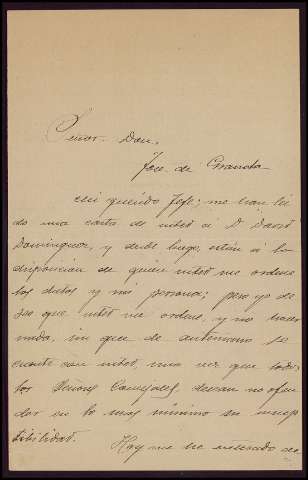 Señor Don,
Jose de Granda
Mi querido Jefe; me han lei
do una carta de usted á D. David
Dominguez, y desde luego, están á la
disposicion de quien usted me ordene
los datos y mi persona; pero yo de
seo que usted me ordene, y no hacer
nada, sin que de antemano se
cuente con usted, una vez que todos
los Señores Concejales, desean no ofen
der en lo mas minimo su susep
tibilidad.
Hoy me he enterado